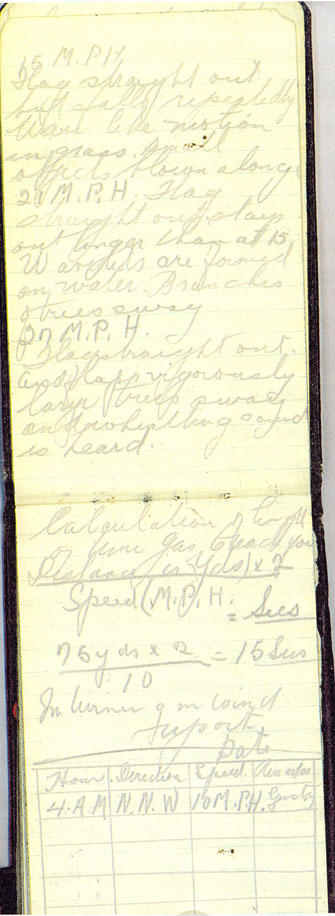 15 M.P.H
Flag straight out
but falls repeatedly
Wave like motion
in grass. Small
objects blown along
21 M.P.H. Flag
straight out. stays
out longer than at 15,
Wavlets are formed
on water. Branches
o trees sway
27 M.P.H.
Flag straight out.
and flaps vigorously
large trees sway
and whistling sound
is heard.
Calculation of length
of time gas
Distance is Yds) x 2
Speed (M.P.H.
= Secs
75 yds x 2 = 15 Secs
10
wind
report
Date
Hour Direction Speed. Remarks
4.A.M N.N.W 10 M.P.H. Gusty